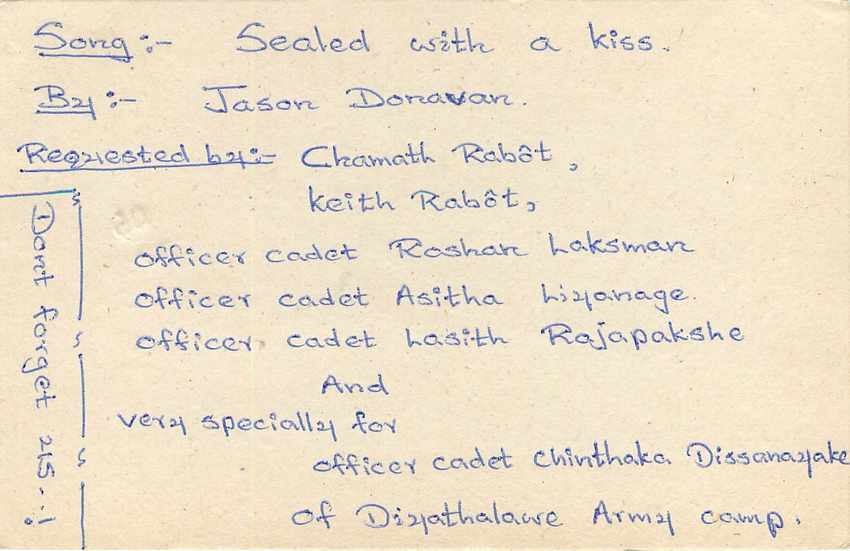 Song :- Sealed with a kiss.
By :- Jason Donavan.
Requested by :- Chamath Rabôt,
Keith Rabôt,
officer cadet Roshan Laksman
officer cadet Asitha Liyanage.
officer cadet Lasith Rajapakshe
And
very specially for
officer cadet Chinthaka Dissanayake
of Diyathalawe Army camp.
Dont forget us..!